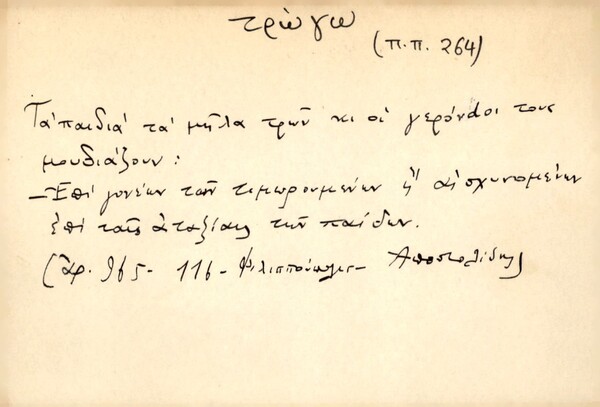 τρώγω
(π.π. 264)
Τα παιδιά τα μήλα τρών κι οι γερόνdοι τους
μουδιάζουν :
— Ἐπί γονέων τῶν τιμωρουμένων ἤ αἰσχυνομένων
ἐπί ταῖς ἀταξίαις τῶν παίδων.
(ἀρ. 965 - 116 - Φιλιππούπολις - Αποστολίδης)